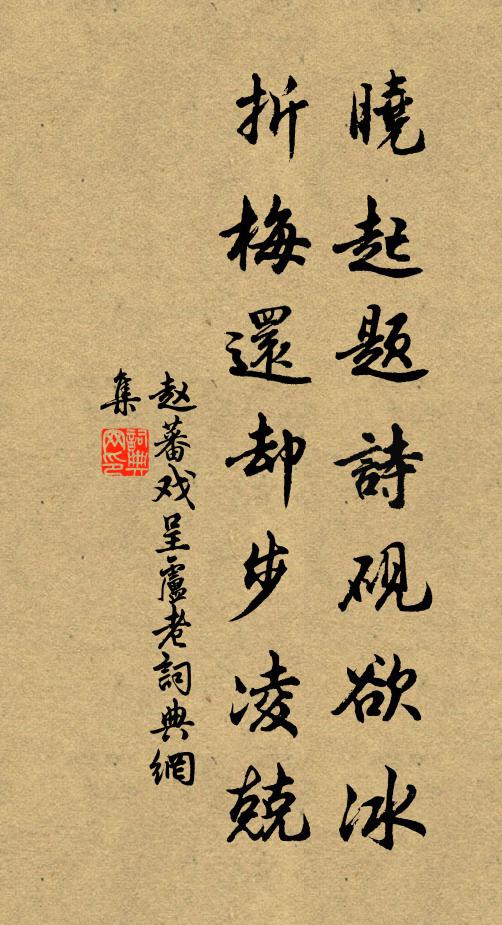 曉起题詩砚欲冰
折梅還却步凌兢
赵蕃戏呈盧老詞典網
集
詞典
网印